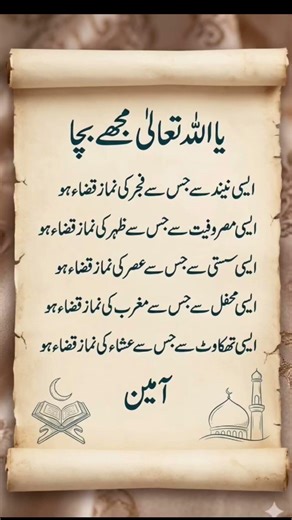 یا اللہ تعالیٰ مجھے بچا
ایسی نیند سے جس سے فجر کی نماز قضاء ہو
ایسی مصروفیت سے جس سے ظہر کی نماز قضاء ہو
ایسی سستی سے جس سے عصر کی نماز قضاء ہو
ایسی محفل سے جس سے مغرب کی نماز قضاء ہو
ایسی تھکاوٹ سے جس سے عشاء کی نماز قضاء ہو
آمین